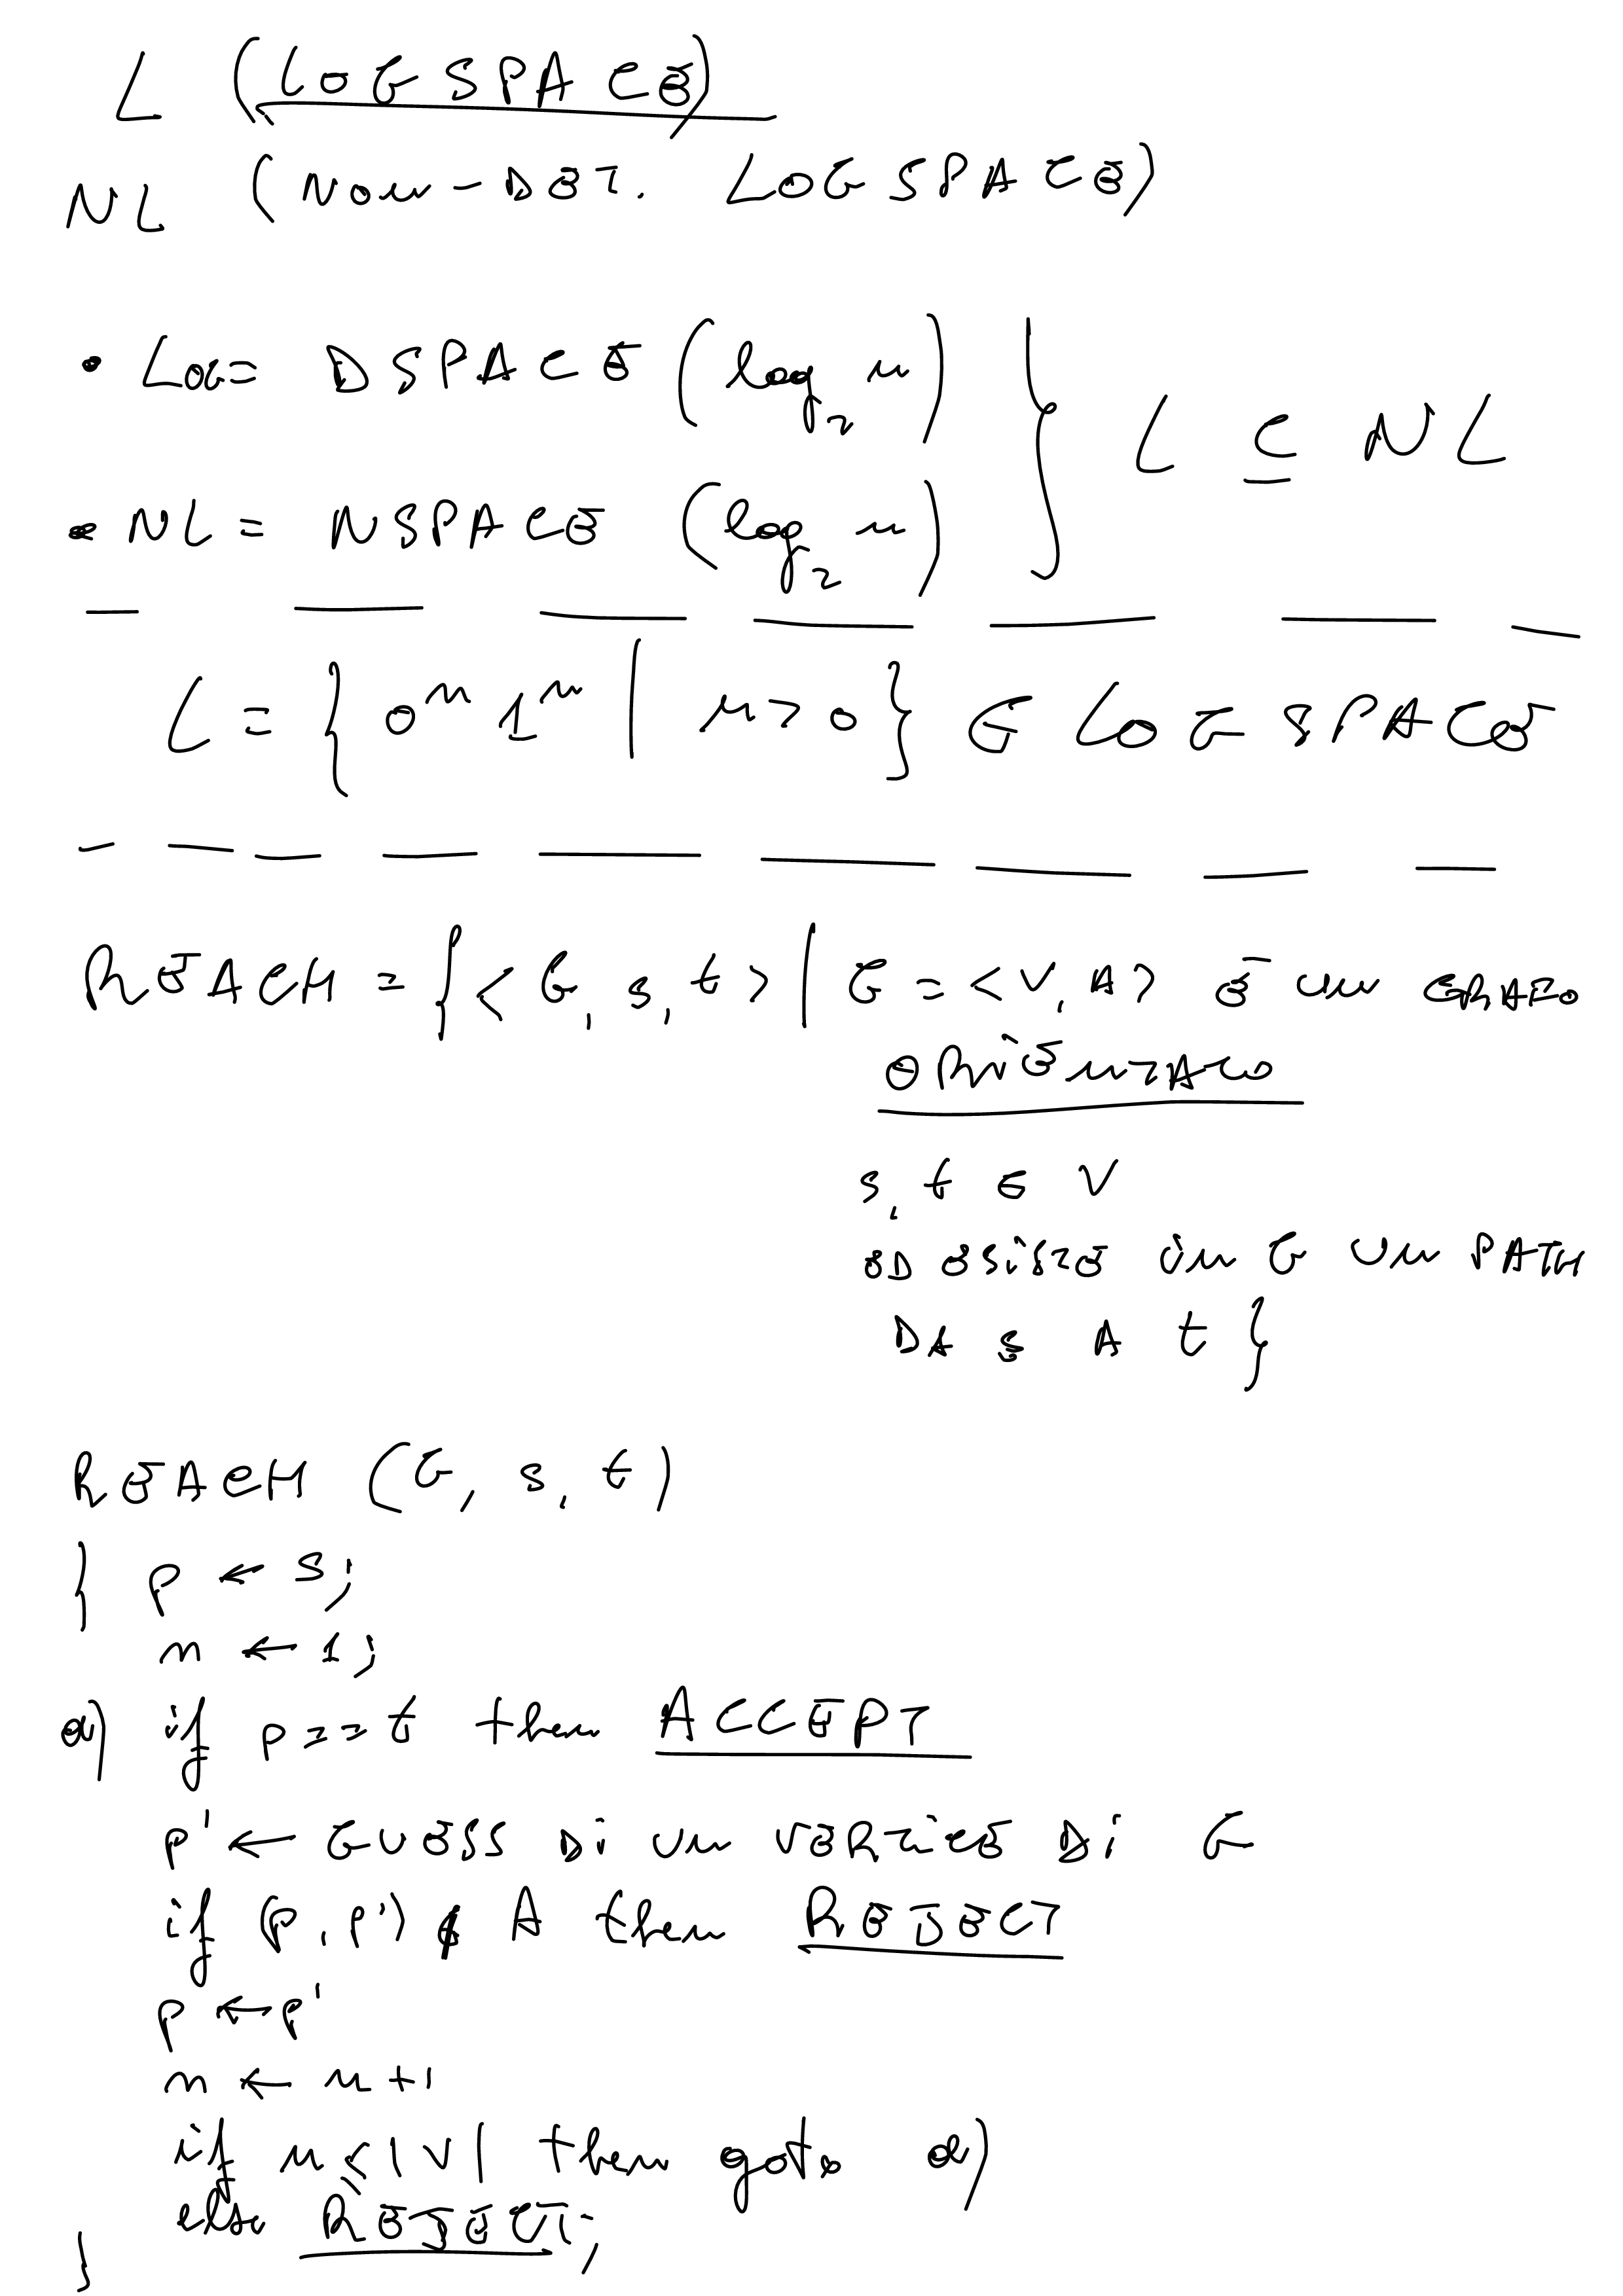 L (LOGSPACE)
NL (NON-DET. LOGSPACE)
• LOG = DSPACE (log₂ n) } L ⊆ NL
• NL = NSPACE (log₂ n)
L = { 0ⁿ 1ⁿ | n > 0 } ∈ LOGSPACE
REACH = { < G, s, t > | G = < V, A > È UN GRAFO
ORIENTATO
s, t ∈ V
ED ESISTE IN G UN PATH
DA s A t }
REACH (G, s, t)
{ p ← s;
n ← 1;
a) if p == t then ACCEPT
p' ← GUESS DI UN VERTICE DI G
if (p, p') ∉ A then REJECT
p ← p'
n ← n + 1
if n ≤ |V| then goto a)
else REJECT;
}